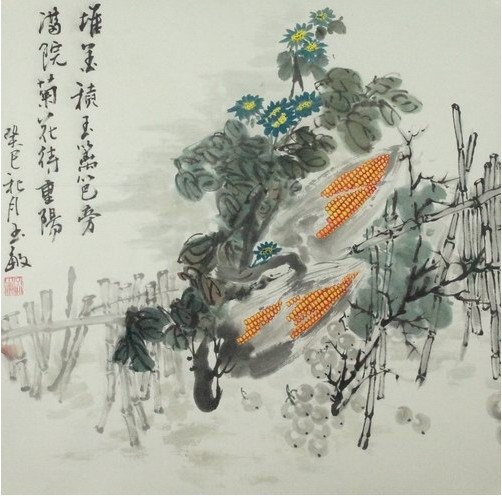 堆金積玉篱笆旁
满院菊花待重陽
癸巳秋月王敏